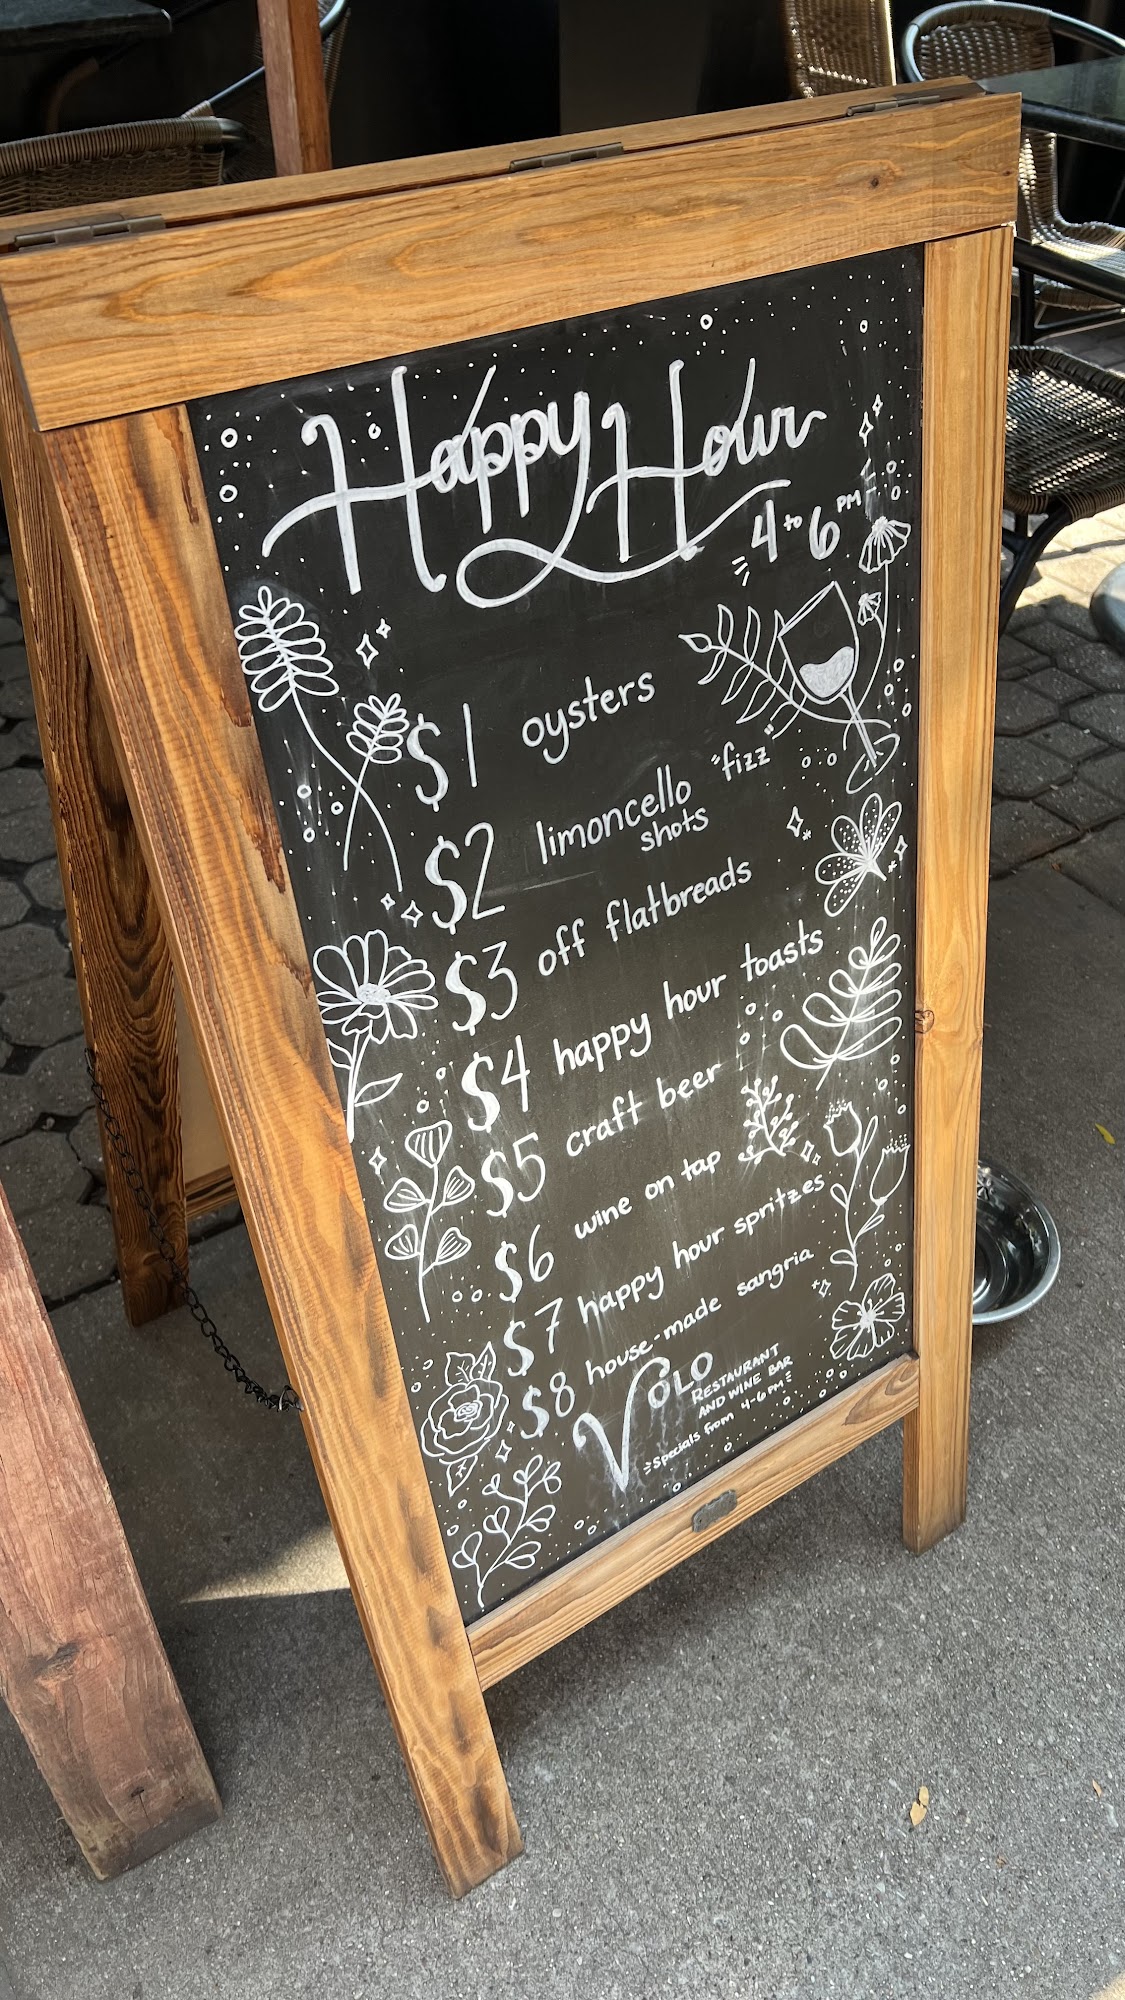 Happy Hour
4 to 6 PM
$1 oysters
$2 limoncello "fizz"
shots
$3 off flatbreads
$4 happy hour toasts
$5 craft beer
$6 wine on tap
$7 happy hour spritzes
$8 house-made sangria
VOLO
RESTAURANT
AND WINE BAR
Specials from 4-6PM